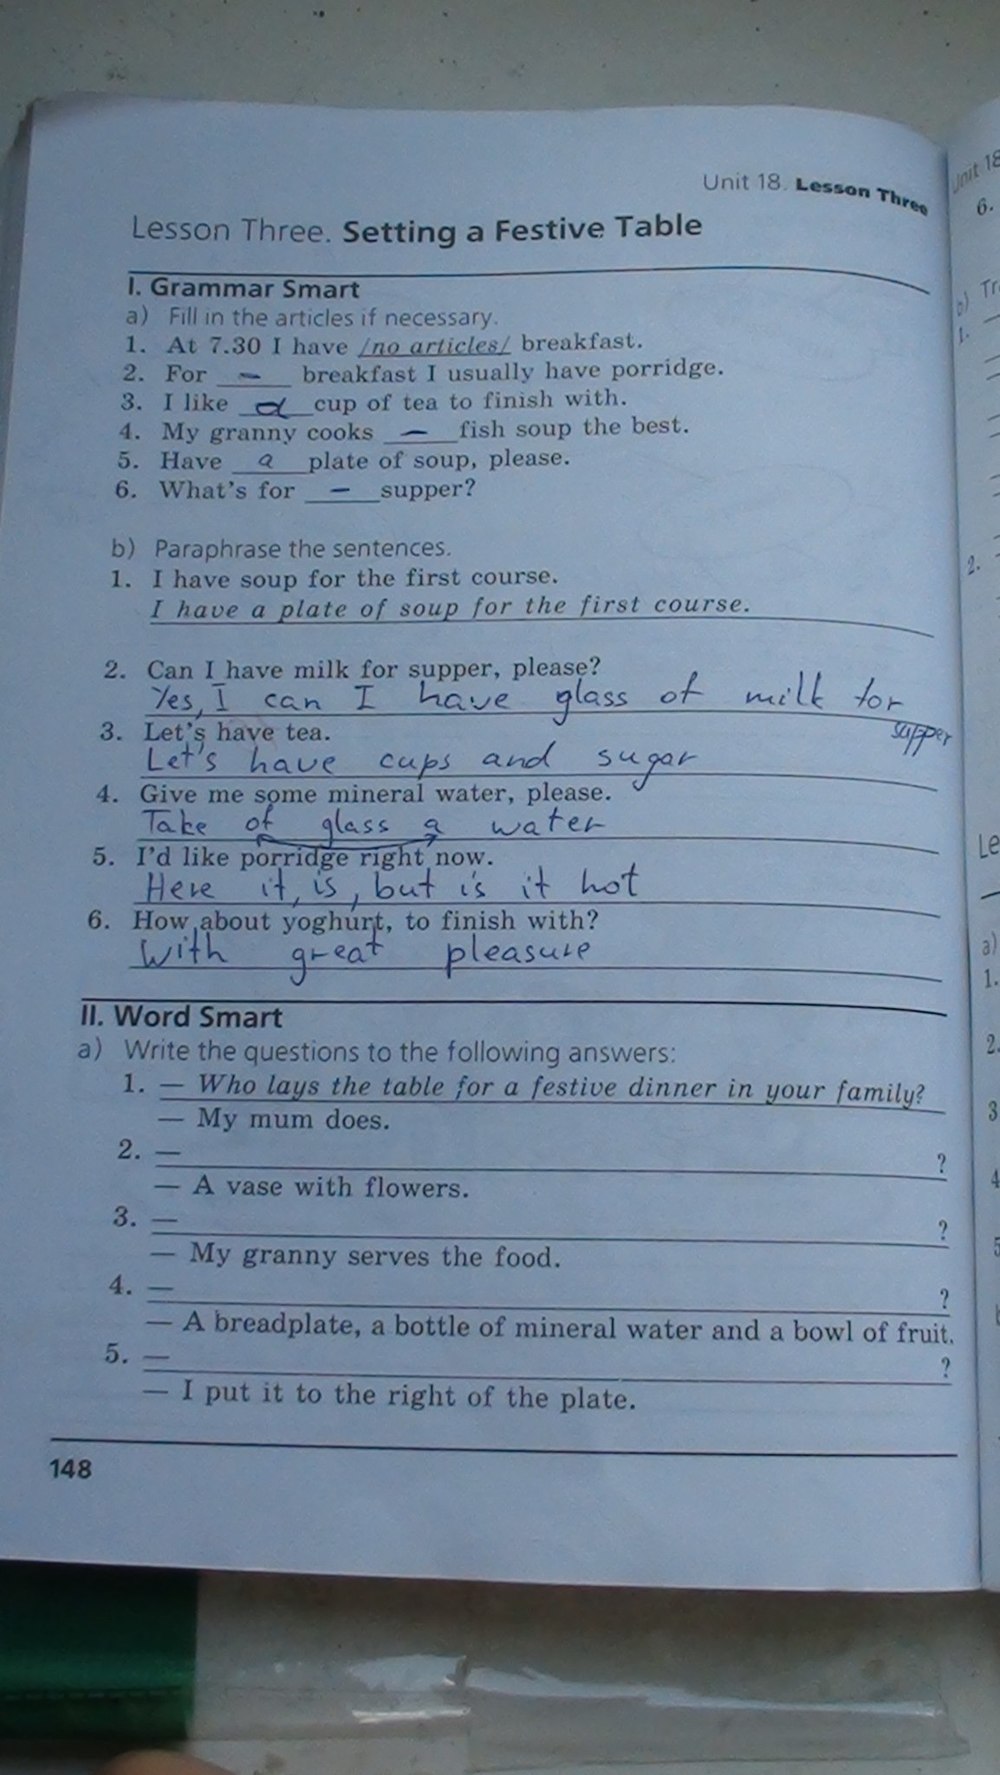 Unit 18. Lesson Three
Lesson Three. Setting a Festive Table
I. Grammar Smart
a) Fill in the articles if necessary.
1. At 7.30 I have /no articles/ breakfast.
2. For – breakfast I usually have porridge.
3. I like a cup of tea to finish with.
4. My granny cooks – fish soup the best.
5. Have a plate of soup, please.
6. What's for – supper?
b) Paraphrase the sentences.
1. I have soup for the first course.
I have a plate of soup for the first course.
2. Can I have milk for supper, please?
Yes, I can I have glass of milk for
supper
3. Let's have tea.
Let's have cups and sugar
4. Give me some mineral water, please.
Take of glass a water
5. I'd like porridge right now.
Here it, is, but is it hot
6. How about yoghurt, to finish with?
With great pleasure
II. Word Smart
a) Write the questions to the following answers:
1. — Who lays the table for a festive dinner in your family?
— My mum does.
2. — ?
— A vase with flowers.
3. — ?
— My granny serves the food.
4. — ?
— A breadplate, a bottle of mineral water and a bowl of fruit.
5. — ?
— I put it to the right of the plate.
148
6.
1.
2.
Le
a)
1.
2.
3
4
5